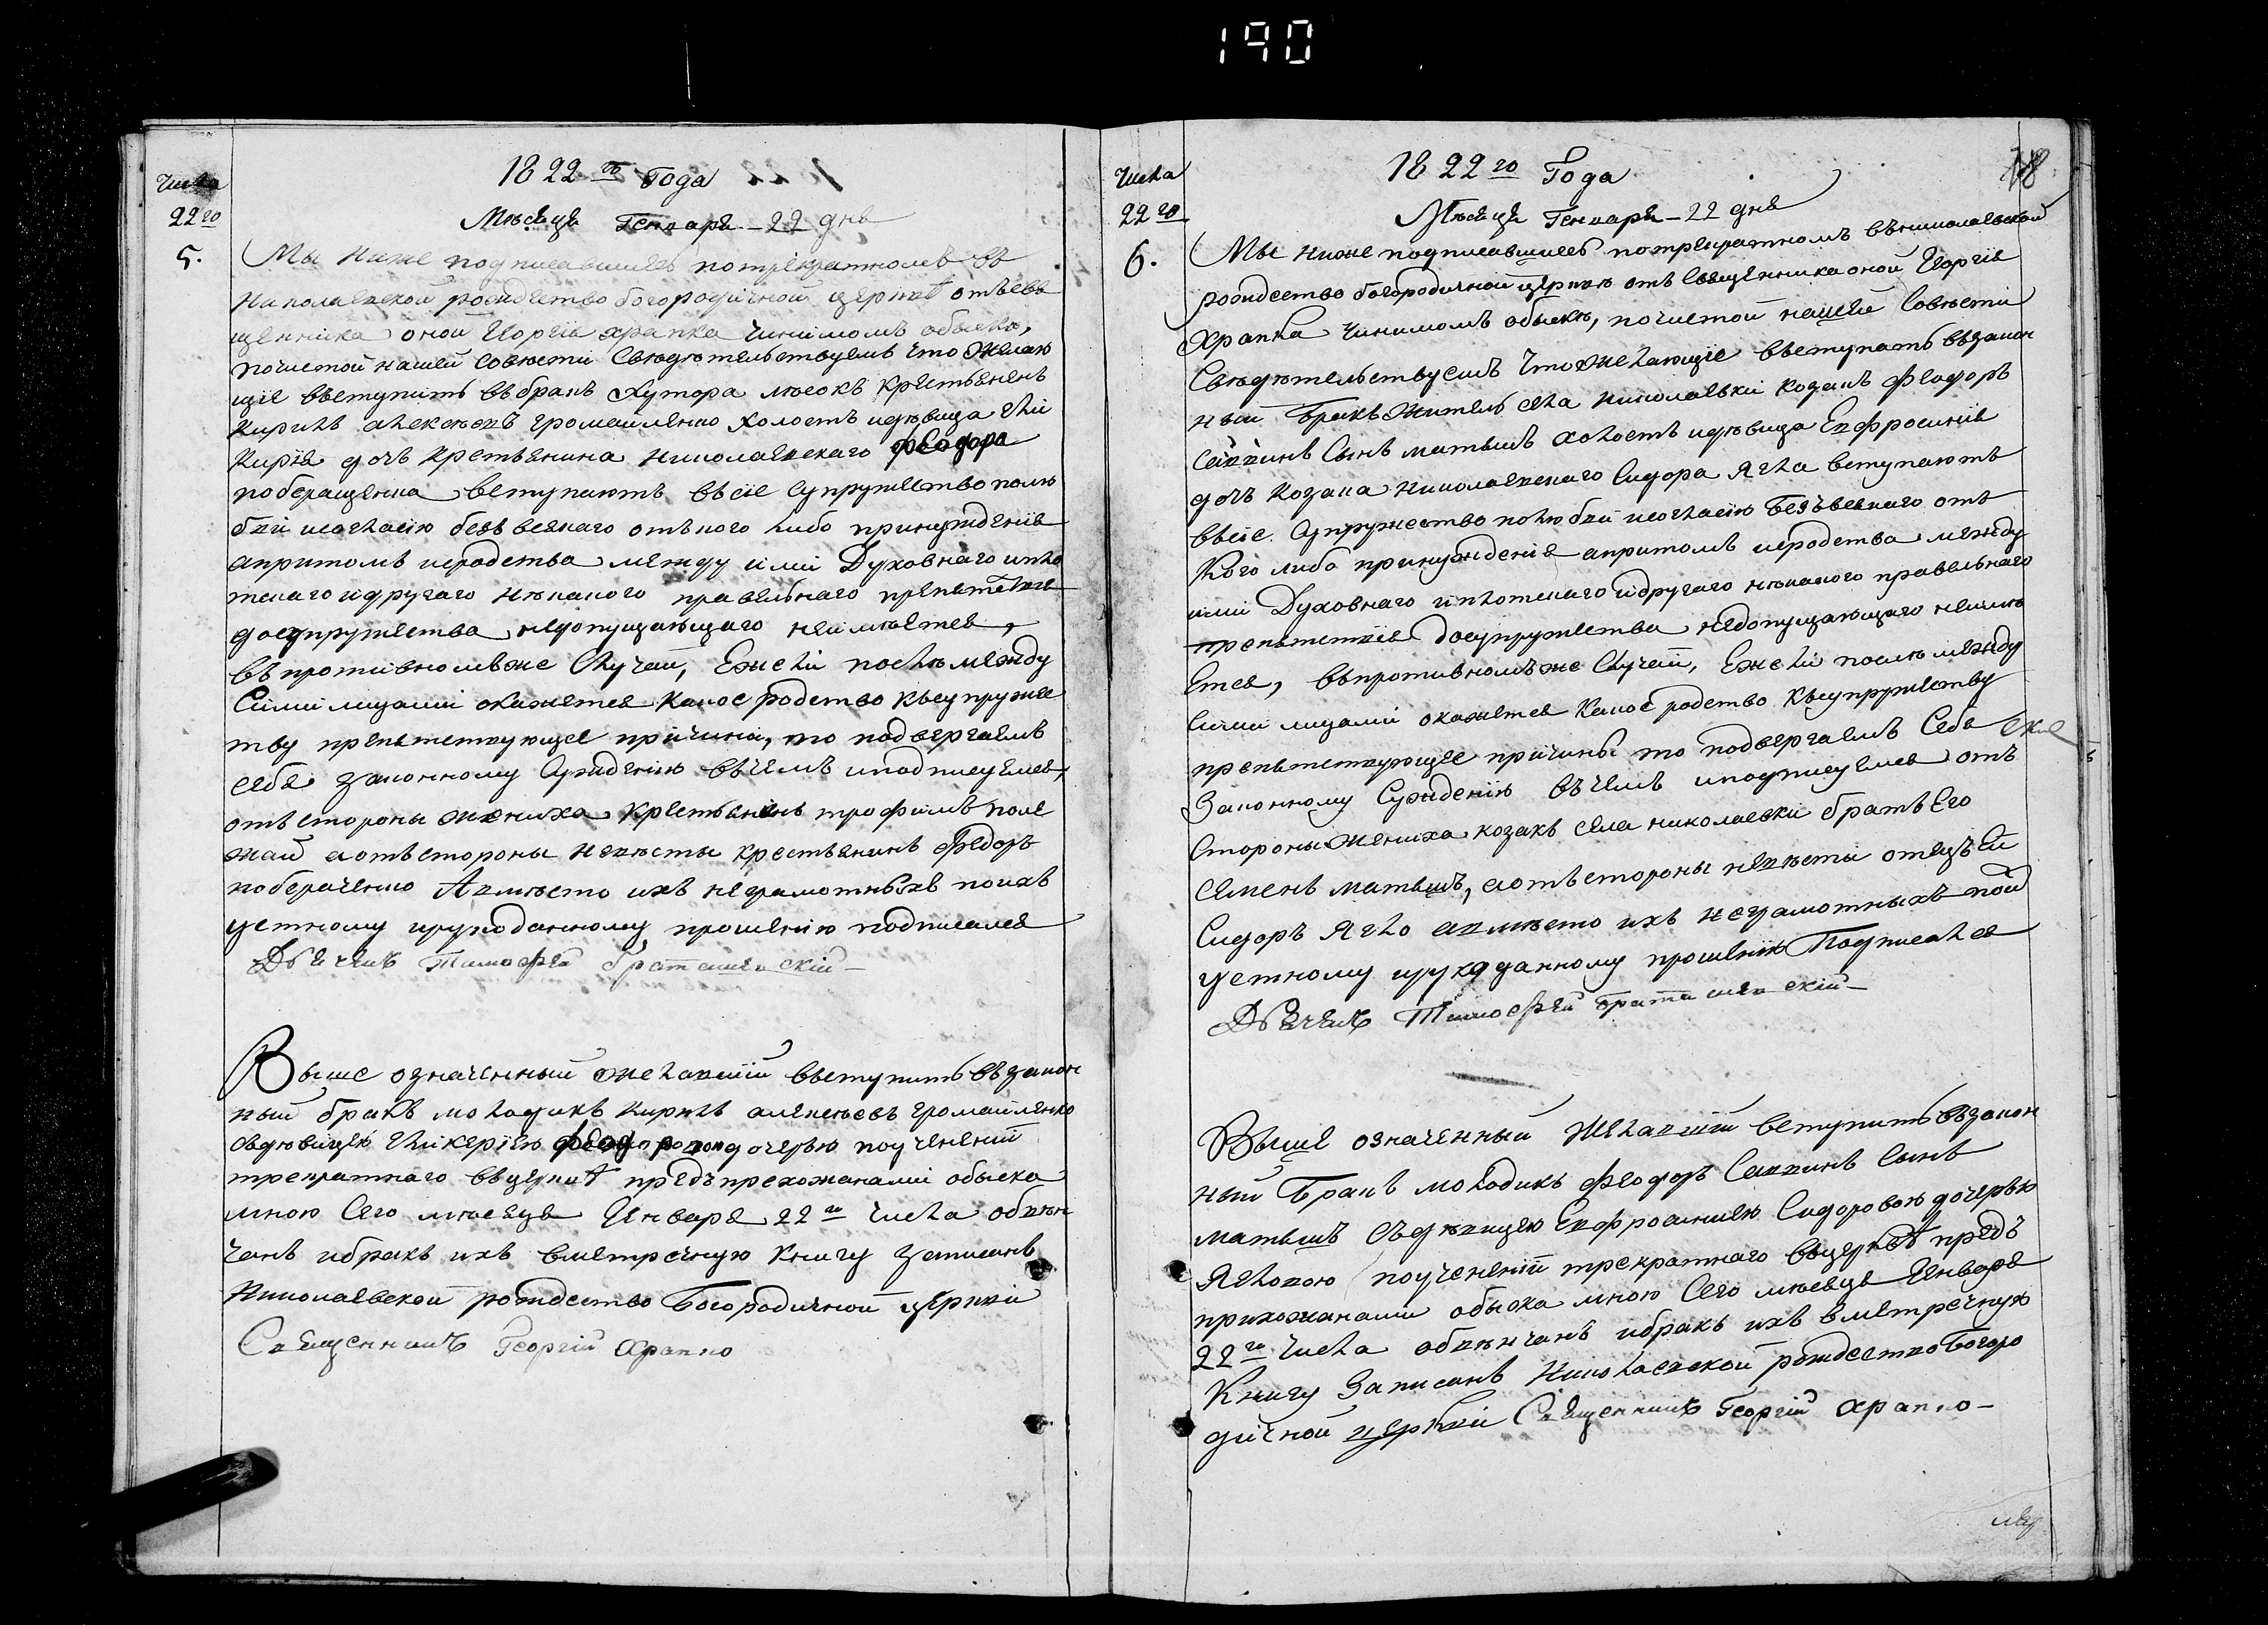 190
Числа
22го
5.
1822го Года
Мѣсяця Генъваря - 22 дня
Мы ниже подписавшиесъ потрекратномъ въ
николаевской рождество богородичной церквѣ отъсвя
щенника оной Георгія храпка чинимомъ обыскѣ,
почистой нашей совѣсти свѣдѣтельствуемъ что желаю
щіе вьступить въбракъ хутора лѣсокъ крестьянинъ
Кирилъ алексѣевъ громайленко холостъ идѣвица гли
кирія дочъ крестьянина николаевскаго феодора
вьступаютъ вьсіе супружество полю
бви исогласію безъвсякаго отъкого либо принужденія
апритомъ иеродства между ими Духовнаго ипло
тскаго идругаго нѣкакого правельнаго препятствія
досупружества недопущающаго неимѣется,
въпротивномъже случаѣ, Ежели послѣ между
Сими лицами окажется какое родство къеупруже
тву препятствующее причина, то подвергаемъ
себя законному сужденію въчемъ иподписуемся,
отъстороны жениха крестьянинъ трофимъ поле
жай аотъстороны невѣсты крестьянинъ Федоръ
Авмѣсто ихъ неграмотныхъ поихъ
устному ирукоданному прошенію подписался
Дьячекъ Тимофей Браташевскій -
Выше означенный желавшій вьступить въ закон
ный бракъ молодикъ кирилъ алексѣевъ громайленко
съдѣвицею гликеріею феодоровою дочерью поучененій
трекратнаго въцерквѣ предъ прехожанами обыска
мною Сего мѣсяця Генваря 22го числа обвѣн
чанъ ибракъ ихъ вметречную книгу записанъ
Николаевской рождество Богородичной церкви
Священникъ Георгій Храпко
Числа
22го
6.
1822го Года
18
Мѣсяця Генъваря - 22 дня
Мы ниже подписавшиесъ потрекратномъ въниколаевской
рождество богородичной церквѣ отъ священника оной Георгія
Храпка чинимомъ обыскѣ, почистой нашей совѣсти
Свѣдѣтельствуемъ что желающіе вьступать възакон
ный Бракъ житель села николаевки козакъ Феодоръ
Саввинъ Сынъ матяшъ холостъ идѣвица Евфросинія
дочъ козака николаевскаго Сидора Ягла вступаютъ
вьсіе супружество полюбви исогласію безъвсякаго отъ
Кого либо принужденія апритомъ иеродства между
ими Духовнаго иплотскаго идругаго нѣкакого правельнаго
препятствія досупружества недопущающаго неимѣ
ется, въпротивномъже случаѣ, Ежели послѣ между
сими лицами окажется какое родство къеупружеству
препятствующее причины то подвергаемъ Себя
Законному Сужденію въчемъ иподписуемся отъ
Стороны жениха козакъ села николаевки братъ Его
семенъ матяшъ, аотъстороны невѣсты отецъ Ей
Сидоръ Ягло авмѣсто ихъ неграмотныхъ поих
устному ирукоданному прошенію Подписался
Дьячекъ Тимофей Браташевскій -
Выше означенный Желавшій вступить възакон
ный Бракъ молодикъ Феодоръ Саввинъ Сынъ
матяшъ съдѣвицею Евфросиніею Сидоровою дочерью
Ягловою поучененій трекратнаго въцерквѣ предъ
прихожанами обыска мною Сего мѣсяця Генваря
22го числа обвѣнчанъ ибракъ ихъ вметречную
Книгу Записанъ Николаевской рождество Богоро
дичной церкви Священникъ Георгій Храпко -